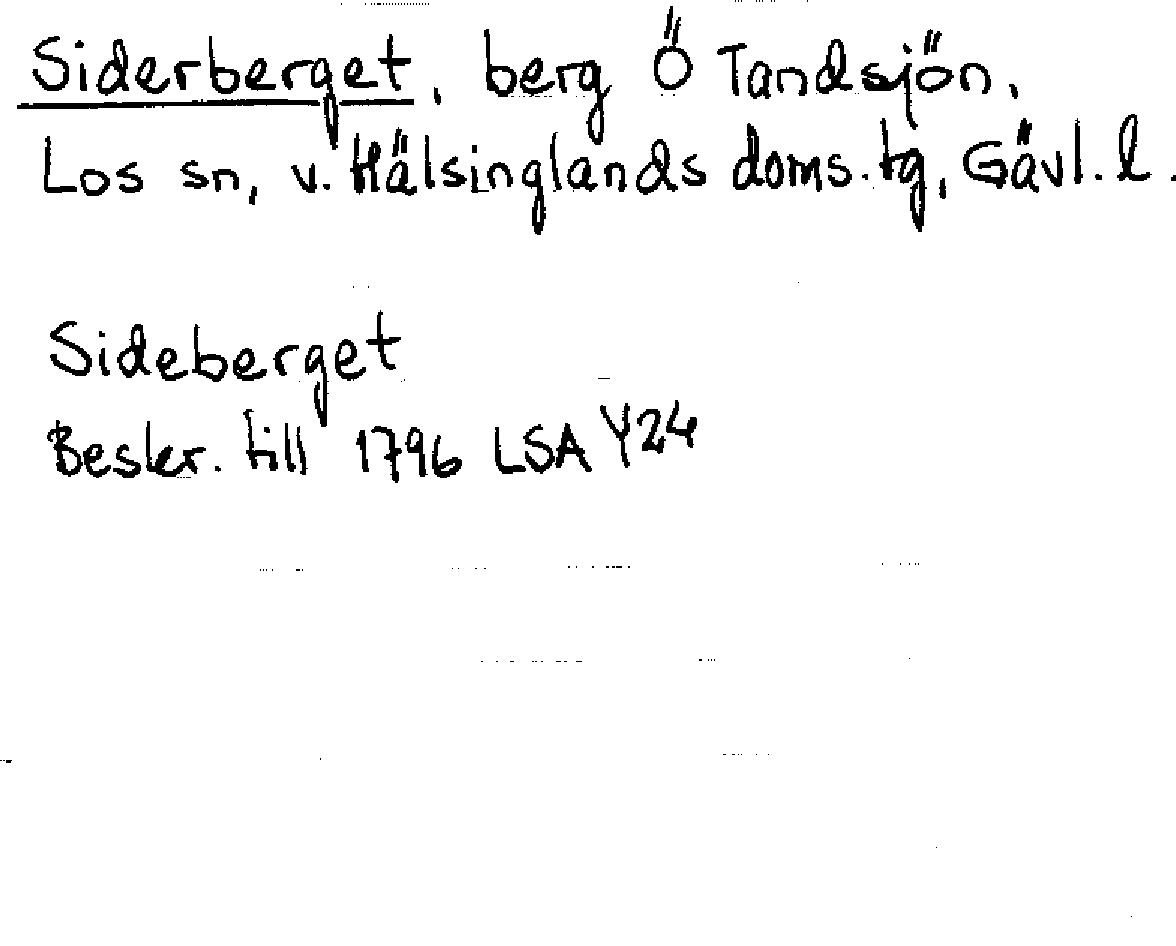 Siderberget, berg Ö Tandsjön,
Los sn, v. Hälsinglands doms. tg, Gävl. l.
Sideberget
Beskr. till 1796 LSA Y24